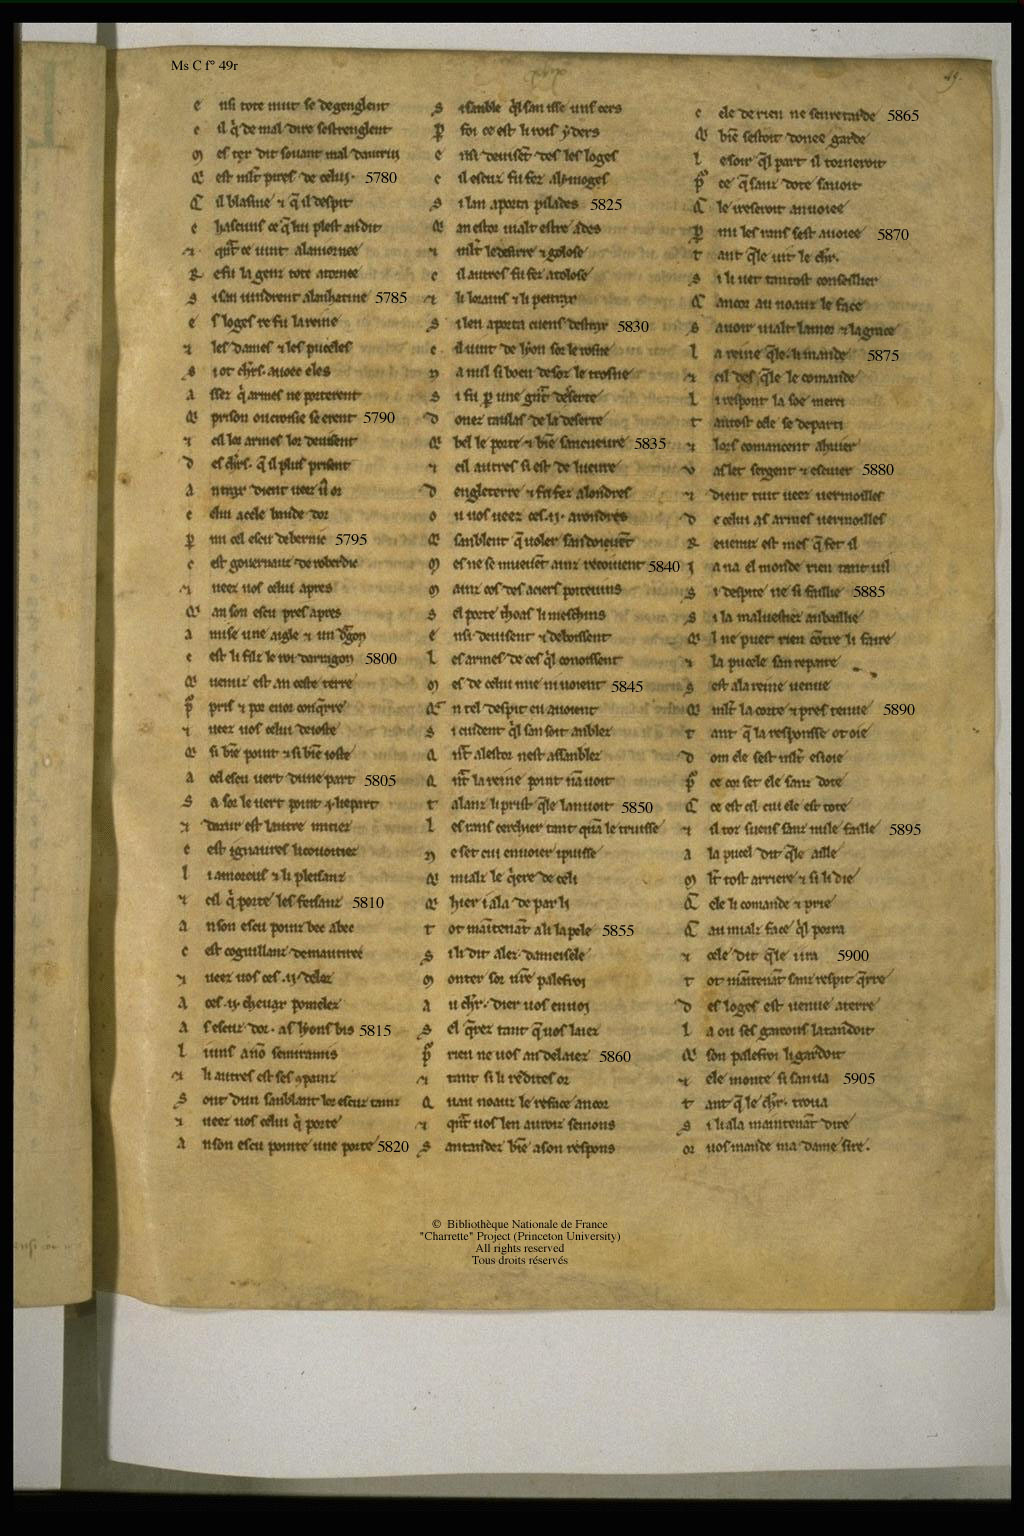 Ms C f° 49r
49.
e nsi tote nuit se degenglent
c il q̇ de mal dire sestrenglent
m es tex dit souant mal dautrui
q̇ est ml̃t pires de celui· 5780
q̃ il blasme ⁊ q̃ il despit
c hascuns ce q̃ lui plest an dit
⁊ qñt ce uint a laiornee
r efu la genz tote atornee
s i san uindrent a lanhatine 5785
e s loges re fu la reïne
⁊ les dames ⁊ les puceles
s i ot chr̃s. auoec eles
a ssez q̇ armes ne porterent
q̇ prison ou croisie se erent 5790
⁊ cil lor armes lor deuisent
d es chr̃s. q̃ il plus prisent
a ntrax dient ueez ũ or
c elui a cele bande dor
p̱ mi cel escu de bernic 5795
c est gouernauz de roberdic
⁊ ueez uos celui apres
q̇ an son escu pres apres
a mise une aigle ⁊ un dragon
c est li filz le roi darragon 5800
q̇ uenuz est an ceste terre
p̃ pris ⁊ por enor conq̃rre
⁊ ueez uos celui de ioste
q̇ si biẽ point ⁊ si biẽ ioste
a cel escu uert dune part 5805
s a sor le uert point .i. liepart
⁊ dazur est lautre mitiez
c est ignaures li couoitiez
l i amoreus ⁊ li pleisanz
⁊ cil q̇ porte les feisanz 5810
a n son escu poinz bec a bec
c est coguillanz de mautirec
⁊ ueez uos ces .ij. delez
a ces .ij. cheuax pomelez
a s escuz dor· as lyons bis 5815
l i uns a nõ semiramis
⁊ li autres est ses ꝯpainz
s ont dun sanblant lor escuz tainz
⁊ ueez uos celui q̇ porte
a n son escu pointe une porte 5820
s i sanble q̇l san isse uns cers
p̱ foi ce est li rois yders
e nsi deuisẽt des les loges
c il escuz fu fez a lymoges
s i lan aporta pilades 5825
q̇ an estor uialt estre ades
⁊ ml̃t le desirre ⁊ golose
c il autres fu fez a tolose
⁊ li lorains ⁊ li peitrax
s i len aporta cuens destrax 5830
c il uint de lyon sor le rosne
n a nul si boen desoz le trosne
s i fu p̱ une gñt deserte
d onez taulas de la deserte
q̇ bel le porte ⁊ biẽ san cueure 5835
⁊ cil autres si est de lueure
d engleterre ⁊ fu fez a londres
o u uos ueez ces .ij. arondres
q̇ sanblent q̃ uoler san doieuẽt
m es ne se mueuẽt ainz recoiuent 5840
m ainz cos des aciers poiteuins
s el porte thoas li meschins
e nsi deuisent ⁊ deboissent
l es armes de ces q̇l conoissent
m es de celui mie ni uoient 5845
q̇ n tel despit eu auoient
s i cuident q̇l san soit anblez
q ñt a lestor nest assanblez
q ñt la reïne point nã uoit
t alanz li prist q̃le lanuoit 5850
l es rans cerchier tant quã le truisse
n e set cui enuoier i puisse
q̇ mialz le q̇ere de celi
q̇ hier i ala de par li
t ot maĩtenãt a li lapele 5855
s i li dit alez· dameisele
m onter sor ur̃e palefroi
a u chr̃· dier uos enuoi
s el q̃rez tant q̃ uos laiez
p̃ rien ne uos an delaiez 5860
⁊ tant si li redites or
q uau noauz le reface ancor
⁊ qñt uos len auroiz semons
s antandez biẽ a son respons
c ele de rien ne se retarde 5865
q̇ biẽ sestoit donee garde
l e soir q̇l part il torneroit
p̃ ce q̃ sanz dote sauoit
q̃ le i reseroit anuoiee
p̱ mi les rans sest auoiee 5870
t ant q̃le uit le chr̃.
s i li uet tantost conseillier
q̃ ancor au noauz le face
s auoir uialt lamor ⁊ la grace
l a reïne q̃le· li mande 5875
⁊ cil des q̃le le comande
l i respont la soe merci
t antost cele se departi
⁊ lors comancent a huier
v aslet sergent ⁊ escuier 5880
⁊ dient tuit ueez meruoilles
d e celui as armes uermoilles
r euenuz est mes q̃ fet il
j a na el monde rien tant uil
s i despite ne si faillie 5885
s i la maluestiez an baillie
q̇ l ne puet rien cõtre li faire
⁊ la pucele san repaire
s est a la reïne uenue
q̇ ml̃t la corte ⁊ pres tenue 5890
t ant q̃ la responsse ot oie
d om ele sest ml̃t esioie
p̃ ce cor set ele sanz dote
q̃ ce est cil cui ele est tote
⁊ il toz suens sanz nule faille 5895
a la pucel dit q̃le aille
m l̃t tost arriere ⁊ si li die
q̃ ele li comande ⁊ prie
q̃ au mialz face q̇l porra
⁊ cele dit q̃le i ira 5900
t ot maĩtenãt sanz respit q̃rre
d es loges est uenue a terre
l a ou ses garcons latãdoit
q̇ son palefroi li gardoit
⁊ ele monte si san ua 5905
t ant q̃ le chr̃· troua
s i li ala maintenãt dire
or uos mande ma dame sire.
© Bibliothèque Nationale de France
"Charrette" Project (Princeton University)
All rights reserved
Tous droits réservés